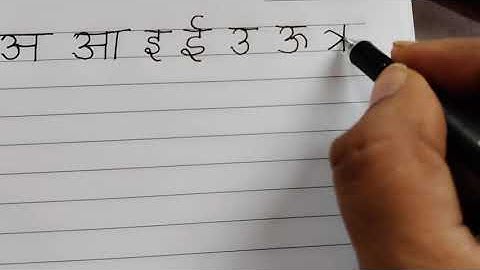 अ आ इ ई उ ऊ